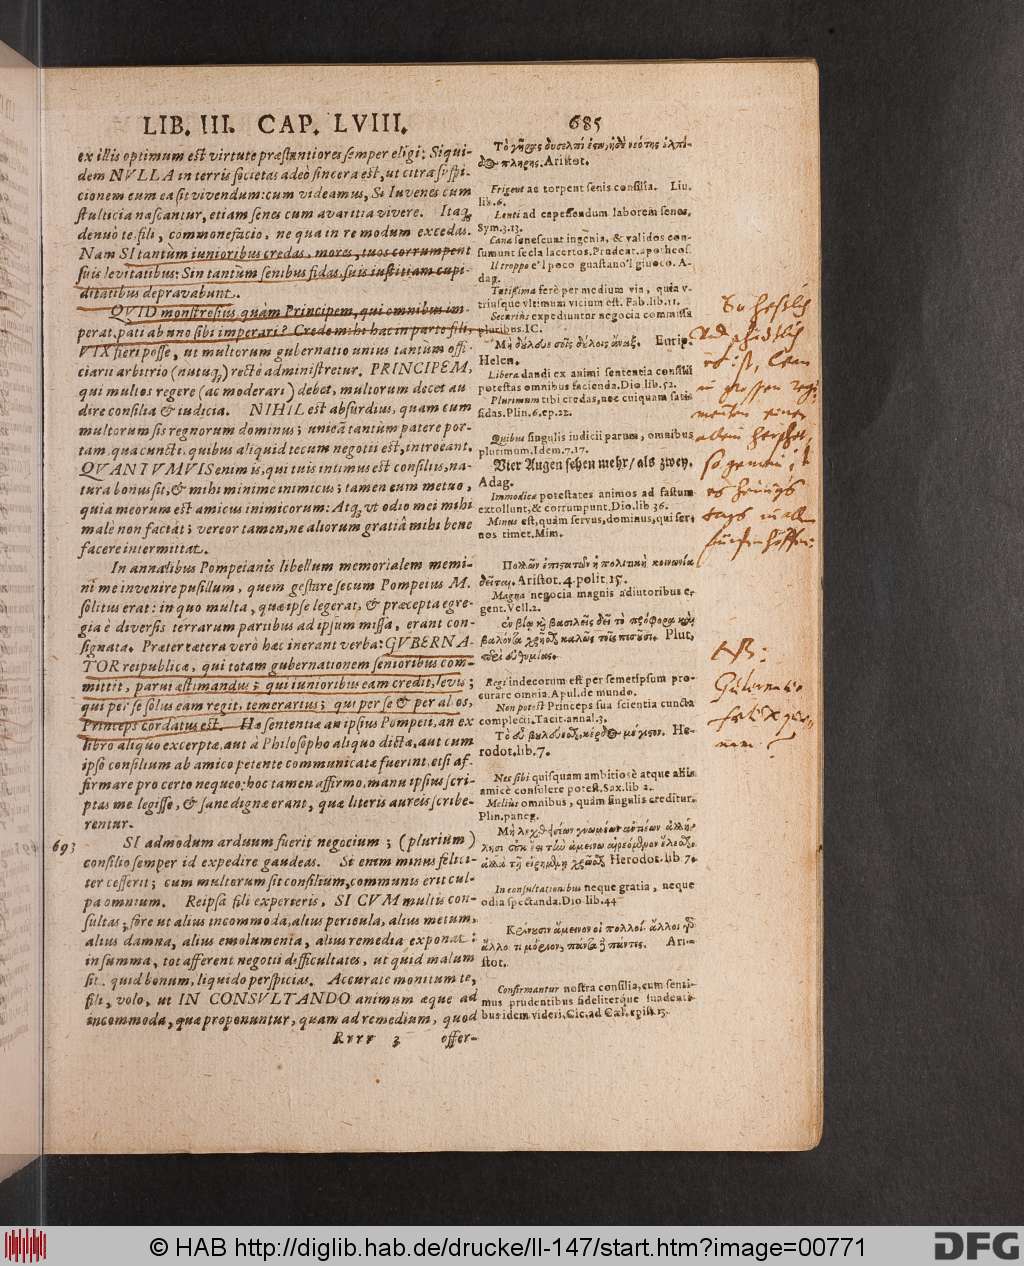 LIB. III. CAP. LVIII. 685
ex illis optimum est virtute præstantiores semper eligi: Siqui-
dem NVLLA in terris societas adeò sincera est, ut citra suspi-
cionem cum ea sit vivendum: cum videamus, Si Iuvenes cum
stultitia nascantur, etiam senes cum avaritia vivere. Itaq;
denuò te, fili, commonefacio, ne qua in re modum excedas.
Nam SI tantùm iunioribus credas, mores, tuos corrumpent
suis levitatibus: Sin tantùm senibus fidas, suis iustitiam cupi-
ditatibus depravabunt.
QVID monstrosius quàm Principem, qui omnibus im-
perat, pati ab uno sibi imperari? Crede mihi hac in parte fili,
VIX fieri posse, ut multorum gubernatio unius tantùm offi-
ciarii arbitrio (nutuq;) rectè administretur. PRINCIPEM,
qui multos regere (ac moderari) debet, multorum decet au
dire consilia & iudicia. NIHIL est absurdius, quam cum
multorum sis regnorum dominus; unicã tantùm patere por-
tam, qua cuncti, quibus aliquid tecum negotii est, introeant.
QVANTVMVIS enim is, qui tuis intimus est consiliis, na-
tura bonus sit, & mihi minime inimicus; tamen eum metuo,
quia meorum est amicus inimicorum: Atq; vt odio mei mihi
male non faciat; vereor tamen, ne aliorum gratiâ mihi bene
facere intermittat.
In annalibus Pompeianis libellum memorialem memi-
ni me invenire pusillum, quem gestare secum Pompeius M.
solitus erat: in quo multa, quæ ipse legerat, & præcepta egre-
gia è diversis terrarum partibus ad ipsum missa, erant con-
signata. Præter cætera verò hæc inerant verba: GVBERNA-
TOR reipublicæ, qui totam gubernationem senioribus com-
mittit, parvi æstimandus; qui iunioribus eam credit, levis;
qui per se solus eam regit, temerarius; qui per se & per alios,
Princeps cordatus est. Hæ sententiæ an ipsius Pompeii, an ex
libro aliquo excerptæ, aut à Philosopho aliquo dictæ, aut cum
ipso consilium ab amico petente communicatæ fuerint, etsi af-
firmare pro certo nequeo: hoc tamen affirmo, manu ipsius scri-
ptas me legisse, & sane dignæ erant, quæ literis aureis scribe-
rentur.
693
SI admodum arduum fuerit negocium; (plurium)
consilio semper id expedire gaudeas. Si enim minus felici-
ter cesserit; cum multorum sit consilium, communis erit cul-
pa omnium. Reipsâ fili experieris, SI CVM multis con-
sultas; fore ut alius incommoda, alius pericula, alius metum,
alius damna, alius emolumenta, alius remedia exponat:
in summa, tot afferent negotii difficultates, ut quid malum
sit, quid bonum, liquido perspicias. Accurate monitum te,
fili, volo, ut IN CONSVLTANDO animum æque ad
incommoda, quæ proponuntur, quam ad remedium, quod
Rrrr 3 offer-
Τὸ γῆρας δυσελπί ἐστι, ἡ δὲ νεότης ἐλπί-
δος πλήρης. Aristot.
Frigent ac torpent senis consilia. Liv.
lib. 6.
Lenti ad capessendum laborem senes,
Sym. 3. 13.
Cana senescunt ingenia, & validos con-
sumunt secla lacertos. Prudent. apotheos.
Il troppo e'l poco guastano'l giuoco. A-
dag.
Tutissima ferè per medium via, quia v-
triusque vltimum vicium est. Fab. lib. 11.
Securius expediuntur negocia commissa
pluribus. IC.
Eurip.
Helen.
Libera dandi ex animi sententia consilii
potestas omnibus facienda. Dio lib. 52.
Plurimum tibi credas, nec cuiquam satis
fidas. Plin. 6. ep. 22.
Quibus singulis iudicii parum, omnibus
plurimum. Idem. 7. 17.
Vier Augen sehen mehr / als zwey.
Adag.
Immodicæ potestates animos ad fastum
extollunt, & corrumpunt. Dio lib 36.
Minus est, quàm servus, dominus, qui ser-
vos timet. Mim.
Πολλῶν ἐπιστατῶν ἡ πολιτικὴ κοινωνία
δεῖται. Aristot. 4. polit. 15.
Magna negocia magnis adiutoribus e-
gent. Vell. 2.
Plut.
Regi indecorum est per semetipsum pro-
curare omnia. Apul. de mundo.
Non potest Princeps sua scientia cuncta
complecti. Tacit. annal. 3.
He-
rodot. lib. 7.
Nec sibi quisquam ambitiosè atque aliis
amicè consulere potest. Sax. lib 2.
Melius omnibus, quàm singulis creditur.
Plin. paneg.
Herodot. lib 7.
In consultationibus neque gratia, neque
odia spectanda. Dio lib. 44
Κρίνουσιν ἄμεινον οἱ πολλοί. ἄλλοι γὸ
ἄλλο τι μόριον, πάντα ἢ πάντες. Ari-
stot.
Confirmantur nostra consilia, cum senti-
mus prudentibus fideliterque suadenti-
bus idem videri. Cic. ad Cæl. epist 15.
So heßlich
und schädlich
es ist, den
in grossen regi-
menten einer
allein herschet,
so gemein ist
es heuttigs
tags in allen
fürsten höffen.
NB:
Gubernator
© HAB http://diglib.hab.de/drucke/ll-147/start.htm?image=00771
DFG